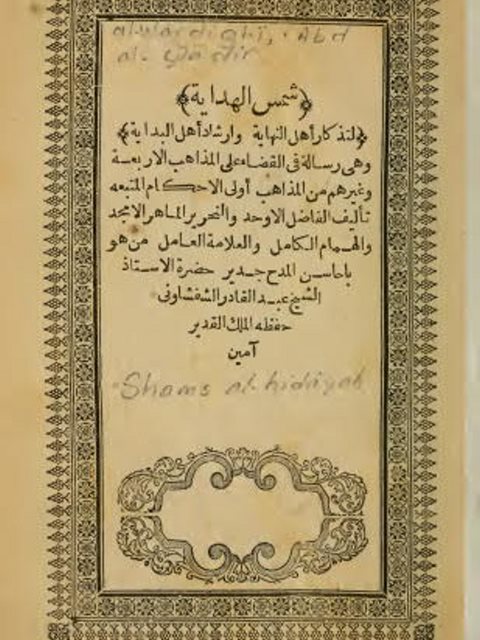 al-Wardīghī, ʿAbd
al-Qādir
﴿شمس الهداية﴾
﴿لتذكار أهل النهاية وارشاد أهل البداية﴾
وهى رسالة فى القضاء على المذاهب الاربعة
وغيرهم من المذاهب أولى الاحكام المتبعه
تأليف الفاضل الاوحد والتحرير الماهر الامجد
والهمام الكامل والعلامة العامل من هو
باحاسن المدح جدير حضرة الاستاذ
الشيخ عبد القادر الشفشاونى
حفظه الملك القدير
آمين
Shams al-hidāyah